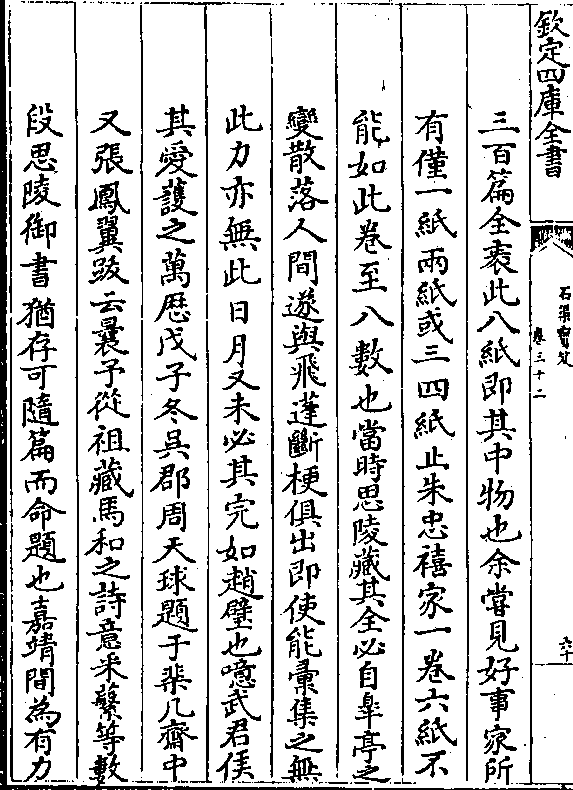 欽定四庫全書
石渠寶笈
卷三十二
六十
三百篇全袠此八紙即其中物也余嘗見好事家所
有僅一紙兩紙或三四紙止朱忠禧家一卷六紙不
能如此卷至八數也當時思陵藏其全必自皐亭之
變散落人間遂與飛蓬斷梗俱出即使能彚集之無
此力亦無此日月又未必其完如趙璧也噫武君侯
其愛護之萬厯戊子冬吳郡周天球題于棐几齋中
又張鳳翼跋云曩予從祖藏馬和之詩意采蘩等數
段思陵御書猶存可隨篇而命題也嘉靖間為有力